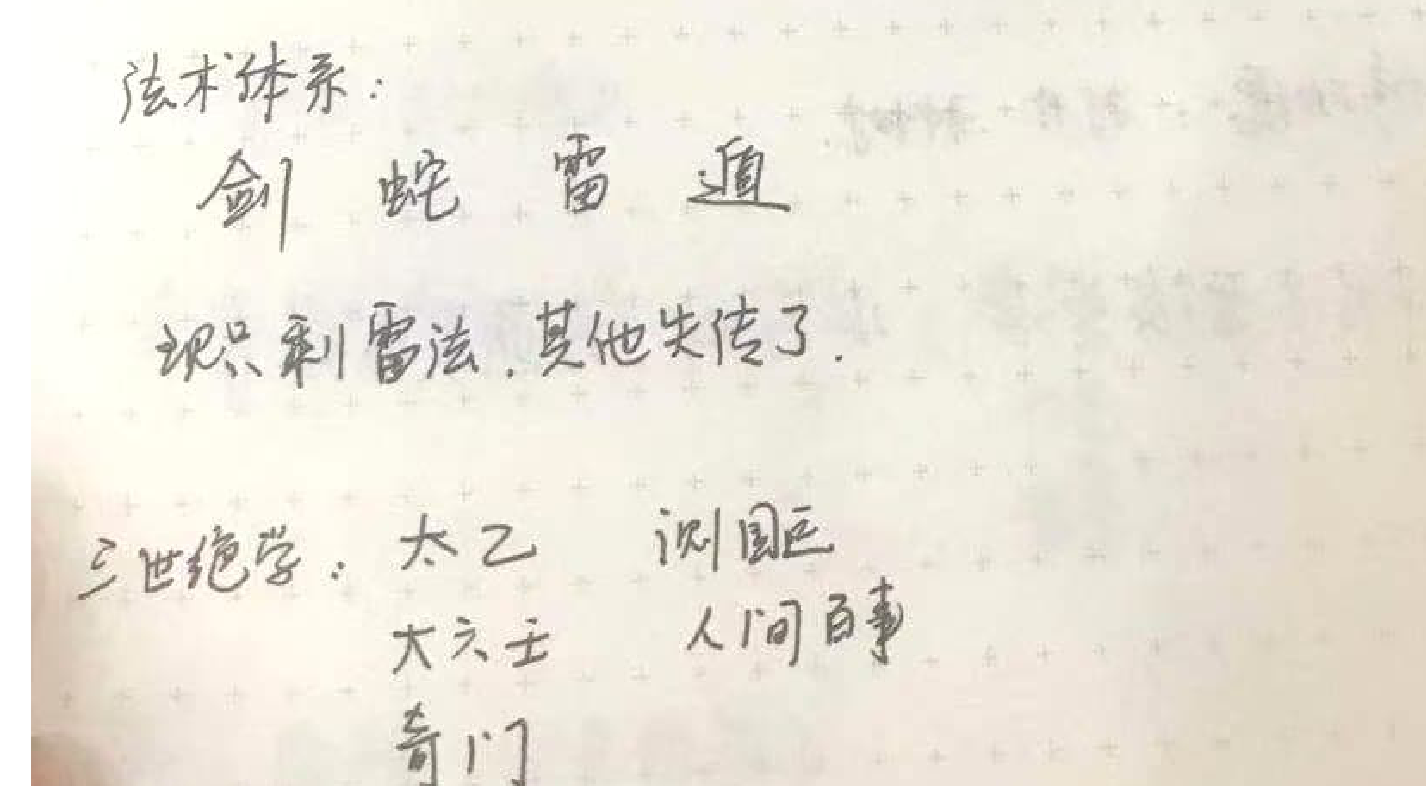 法术体系：
剑 蛇 雷 遁
现只剩雷法，其他失传了.
三世绝学：太乙 测国运
大六壬 人间百事
奇门